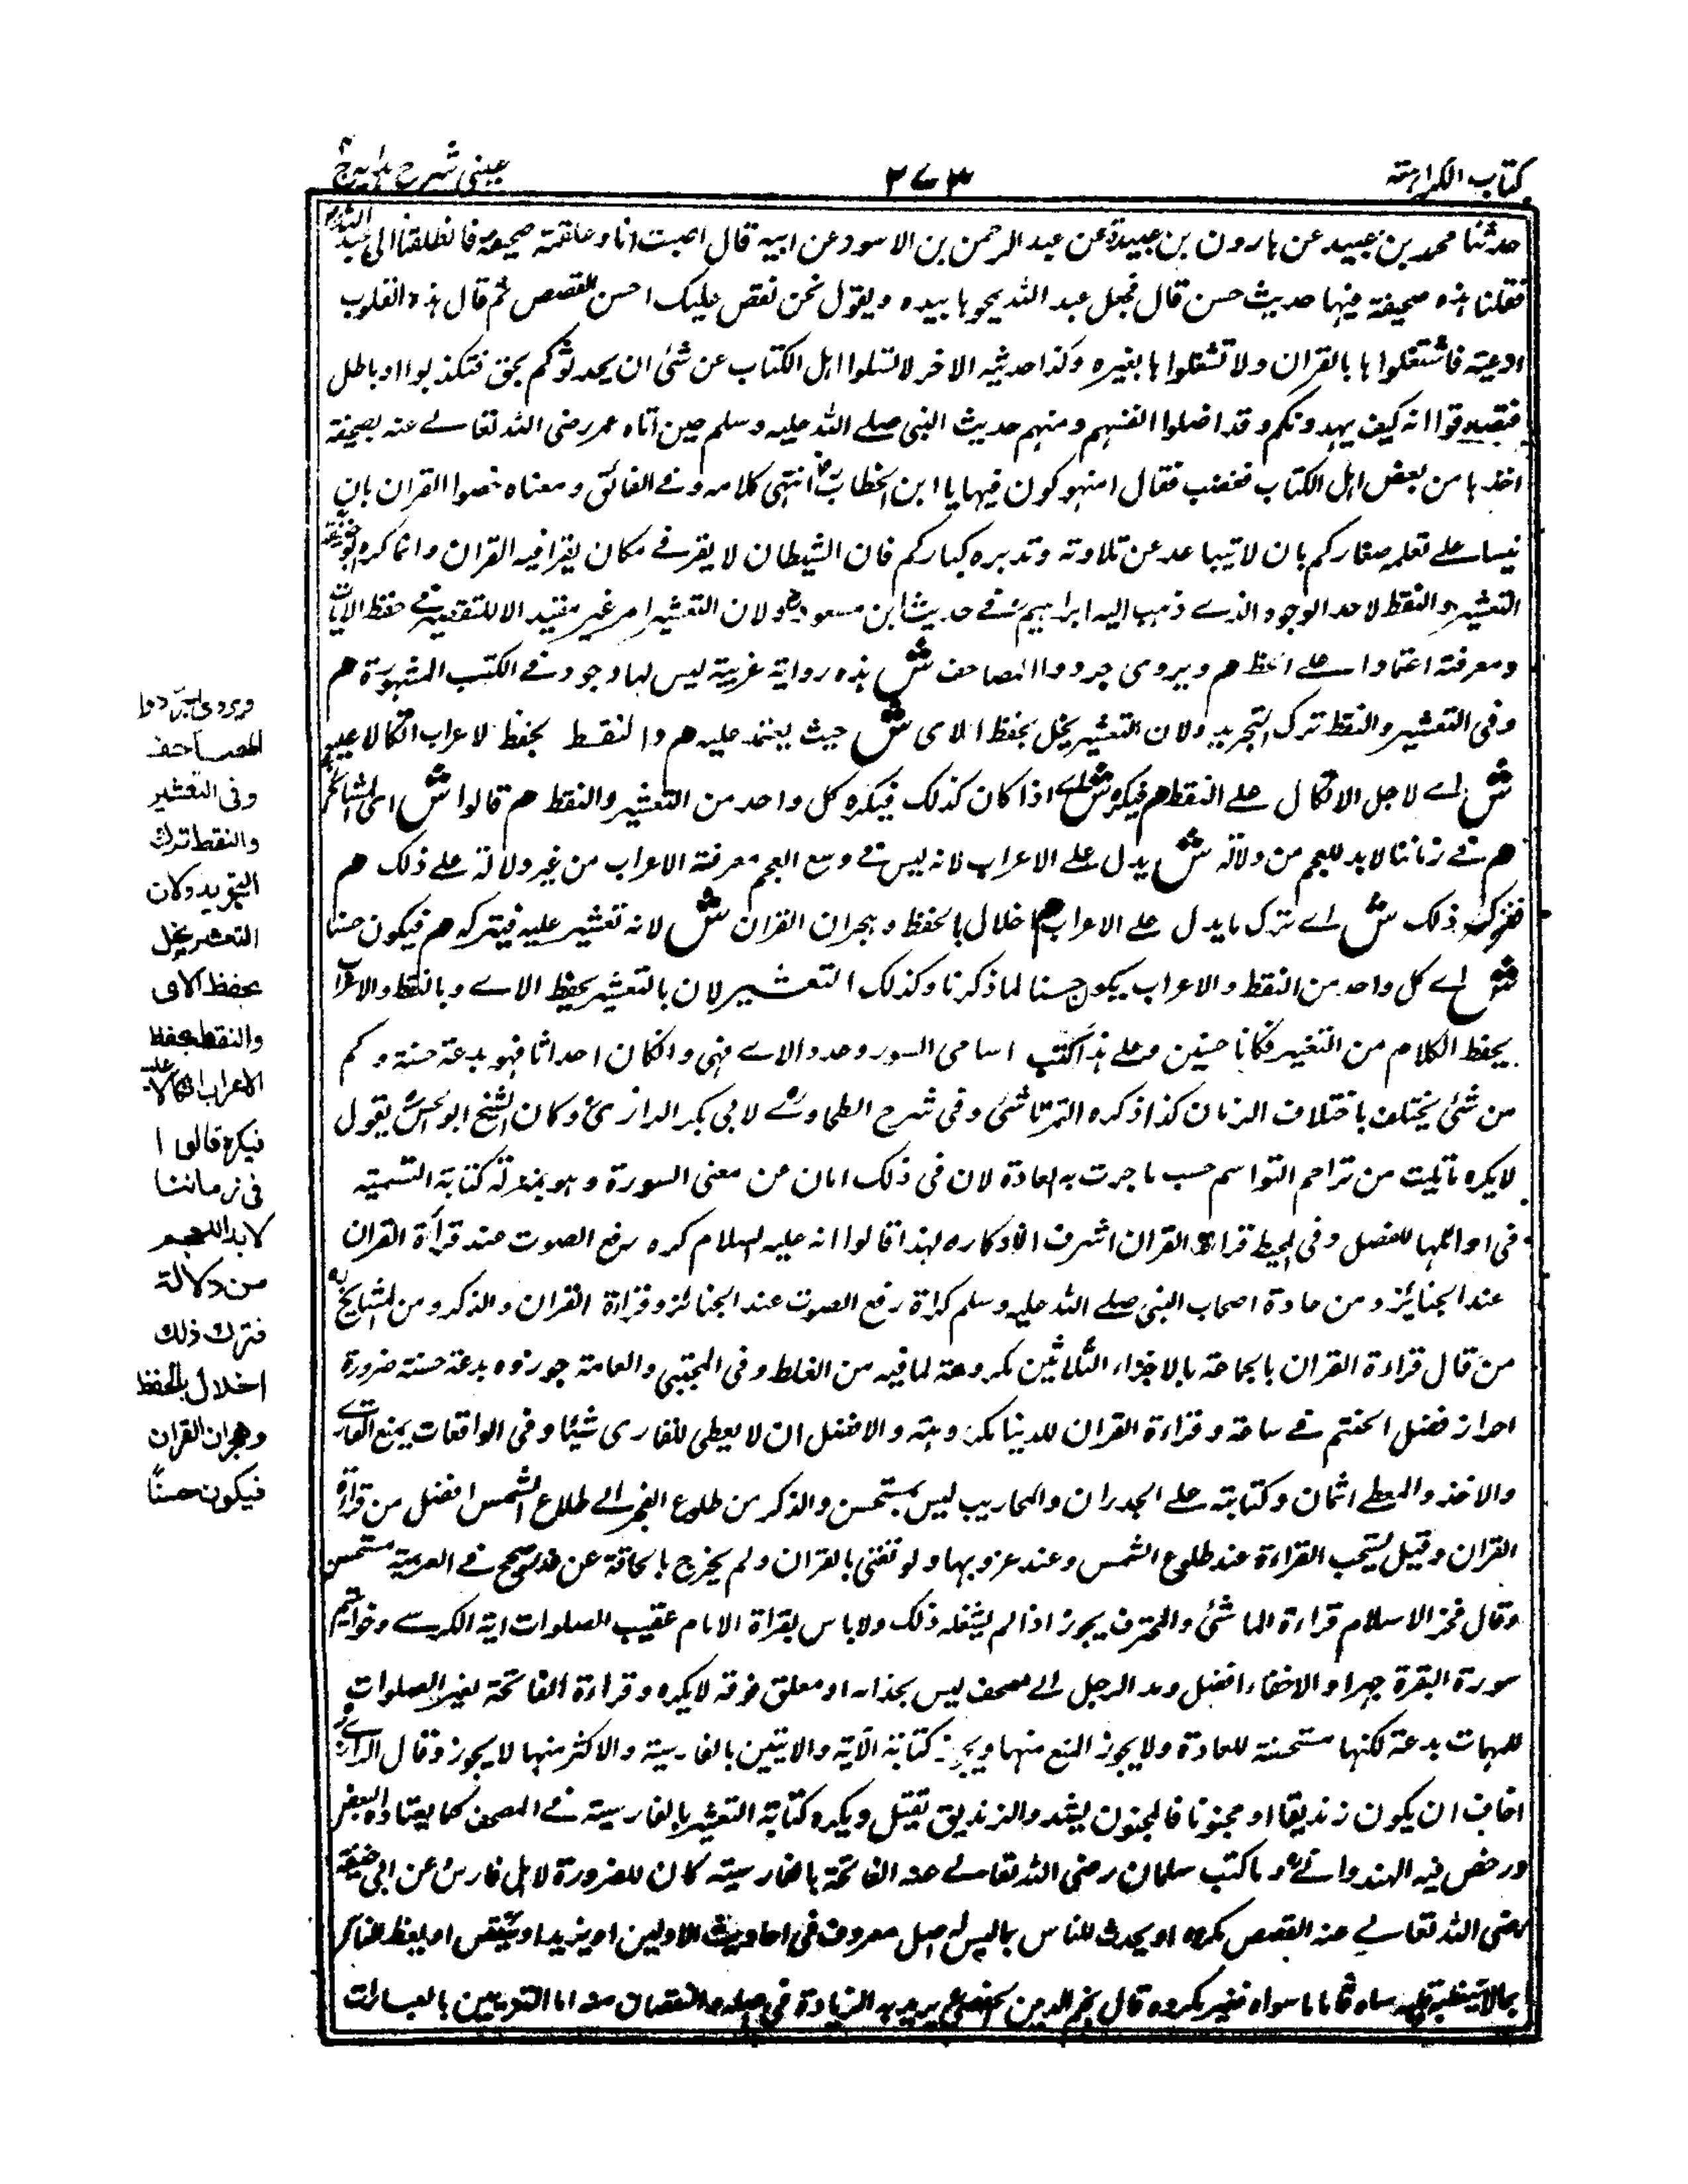 كتاب الكراهته
٣٧٣
عینی شرح ہدایہ ج ٤
حدثنا محمد بن عبيد عن ہارون بن عبيدة عن عبد الرحمن بن الاسود عن ابيه قال اصبت انا و علقمة صحيفة فانطلقنا الى عبد الله
فقلنا ہذه صحيفة فيها حديث حسن قال فجعل عبد الله يمحوہا بيده ويقول نحن نقص عليك احسن القصص ثم قال ہذہ القلوب
اوعية فاشتغلوا ہا بالقران ولا تشغلوا ہا بغيره وكذا حديثه الاخر لا تسلوا اہل الكتاب عن شئ ان يحدثوكم بحق فتكذبوا او باطل
فتصدقوا انه كيف يهدونكم وقد اضلوا انفسهم ومنهم حديث النبي صلے الله عليه وسلم حين اتاه عمر رضی الله تعالے عنه بصحيفة
اخذہا من بعض اہل الكتاب فغضب فقال امتهوكون فيها يا ابن الخطاب انتہی كلامه وفے الفائق ومعناه خصوا القران بان
ينشاء علے تعلمه صغاركم بان لا تيباعد عن تلاوته وتدبره كباركم فان الشيطان لا يقر فے مكان يقرا فيه القران وانما كره ابو حنيفة
التعشير والنقط لاحد الوجوه الذے ذہب اليه ابراہيم فے حديث ابن مسعود ولان التعشير امر غير مفيد الا للتقصير فے حفظ الآيات
ومعرفته اعتمادا علے الخط هم ويروى جردوا المصاحف ش ہذه رواية غريبة ليس لها وجود فے الكتب المشهورة هم
وفی التعشير والنقط ترك التجريد ولان التعشير يخل بحفظ الاى ش حيث يعتمد عليه هم والنقط بحفظ الاعراب اتكالا عليه
ش اے لاجل الاتكال علے النقط هم فيكره ش اے اذا كان كذلك فيكره كل واحد من التعشير والنقط هم قالوا ش اى المشائخ
هم فے زماننا لابد للعجم من دلالة ش يدل علے الاعراب لانه ليس فے وسع العجم معرفة الاعراب من غير دلالة علے ذلك هم
فترك ذلك ش اے ترك ما يدل علے الاعراب هم اخلال بالحفظ وہجران القران ش لانه تعشير عليه فيتركه هم فيكون حسنا
ش اے كل واحد من النقط والاعراب يكون حسنا لما ذكرنا وكذلك التعشير لان بالتعشير يحفظ الاے وبالنقط والاعراب
يحفظ الكلام من التغير فكانا حسنين وعلے ہذا كتب اسامی السور وعدد الاے فہی وان كان احداثا فهو بدعة حسنة وكم
من شئ يختلف باختلاف الزمان كذا ذكره التمرتاشی وفی شرح الطحاوے لابی بكر الرازی وكان الشيخ ابو الحسن يقول
لا يكره ما يكتب من تراجم التواسم حسب ما جرت به العادة لان فی ذلك امان عن معنى السورة وہو بمنزلة كتابة التسمية
فی اوائلها للفصل وفی المحيط قراءة القران اشرف الاذكاره لہذا قالوا انه عليه السلام كره رفع الصوت عند قرأة القران
عند الجنائز ومن عادة اصحاب النبی صلے الله عليه وسلم كراهة رفع الصوت عند الجنائز وقراءة القران والذكر ومن المشايخ
من قال قراءة القران بالجماعة بالاجزاء الثلاثين مكروهة لما فيه من الغلط وفی المجتبى والعامة جوزوه بدعة حسنة ضرورة
احراز فضل الختم فے ساعة وقراءة القران للدنيا مكروہة والافضل ان لا يعطى للقارى شيئا وفی الواقعات يمنع القارے
والاخذ والمعطے اثمان وكتابته علے الجدران والمحاريب ليس بمستحسن والذكر من طلوع الفجر الے طلاع الشمس افضل من قراءة
القران وقيل يستحب القراءة عند طلوع الشمس وعند غروبها ولو تغنى بالقران ولم يخرج بالحاقة عن قدر صحيح فے العربية مستحسن
وقال فخر الاسلام قراءة الماشئ والمحترف يجوز اذا لم يشغله ذلك ولا باس بقراة الامام عقيب الصلوات اية الكرسے وخواتيم
سورة البقرة جهرا والاخفاء افضل ومد الرجل الے مصحف ليس بحذاه او معلق فوقه لا يكره وقراءة الفاتحة لغير الصلوات
للمهمات بدعة لكنها مستحسنة للعادة ولا يجوز المنع منها ويجوز كتابة الآية والايتين بالفارسية والاكثر منها لا يجوز وقال الرازے
اخاف ان يكون زنديقا او مجنونا فالمجنون يشد والزنديق يقتل ويكره كتابة التعشير بالفارسية فے المصحف كما يعتاده البعض
ورخص فيه الهندوانے وما كتب سلمان رضی الله تعالے عنه الفاتحة بالفارسية كان للضرورة لاہل فارس عن ابی حنيفة
رضی الله تعالے عنه القصص مكروه او يحدث للناس بما ليس له اصل معروف فی احاديث الاولين او يزيد او ينقص او يعظ الناس
بما لا يتعظ به قلبه ساه فاما ما سواه فغير مكروه قال نجم الدين يريد به الزيادة فی اصله والنقصان منه اما التزيين بالعبارات
ويروى جردوا
المصاحف
وفى التعشير
والنقط ترك
التجريد ولان
التعشير يخل
بحفظ الاى
والنقط بحفظ
الاعراب اتكالا عليه
فيكره قالوا
فى زماننا
لابد للعجم
من دلالة
فترك ذلك
اخلال بالحفظ
وهجران القران
فيكون حسنًا